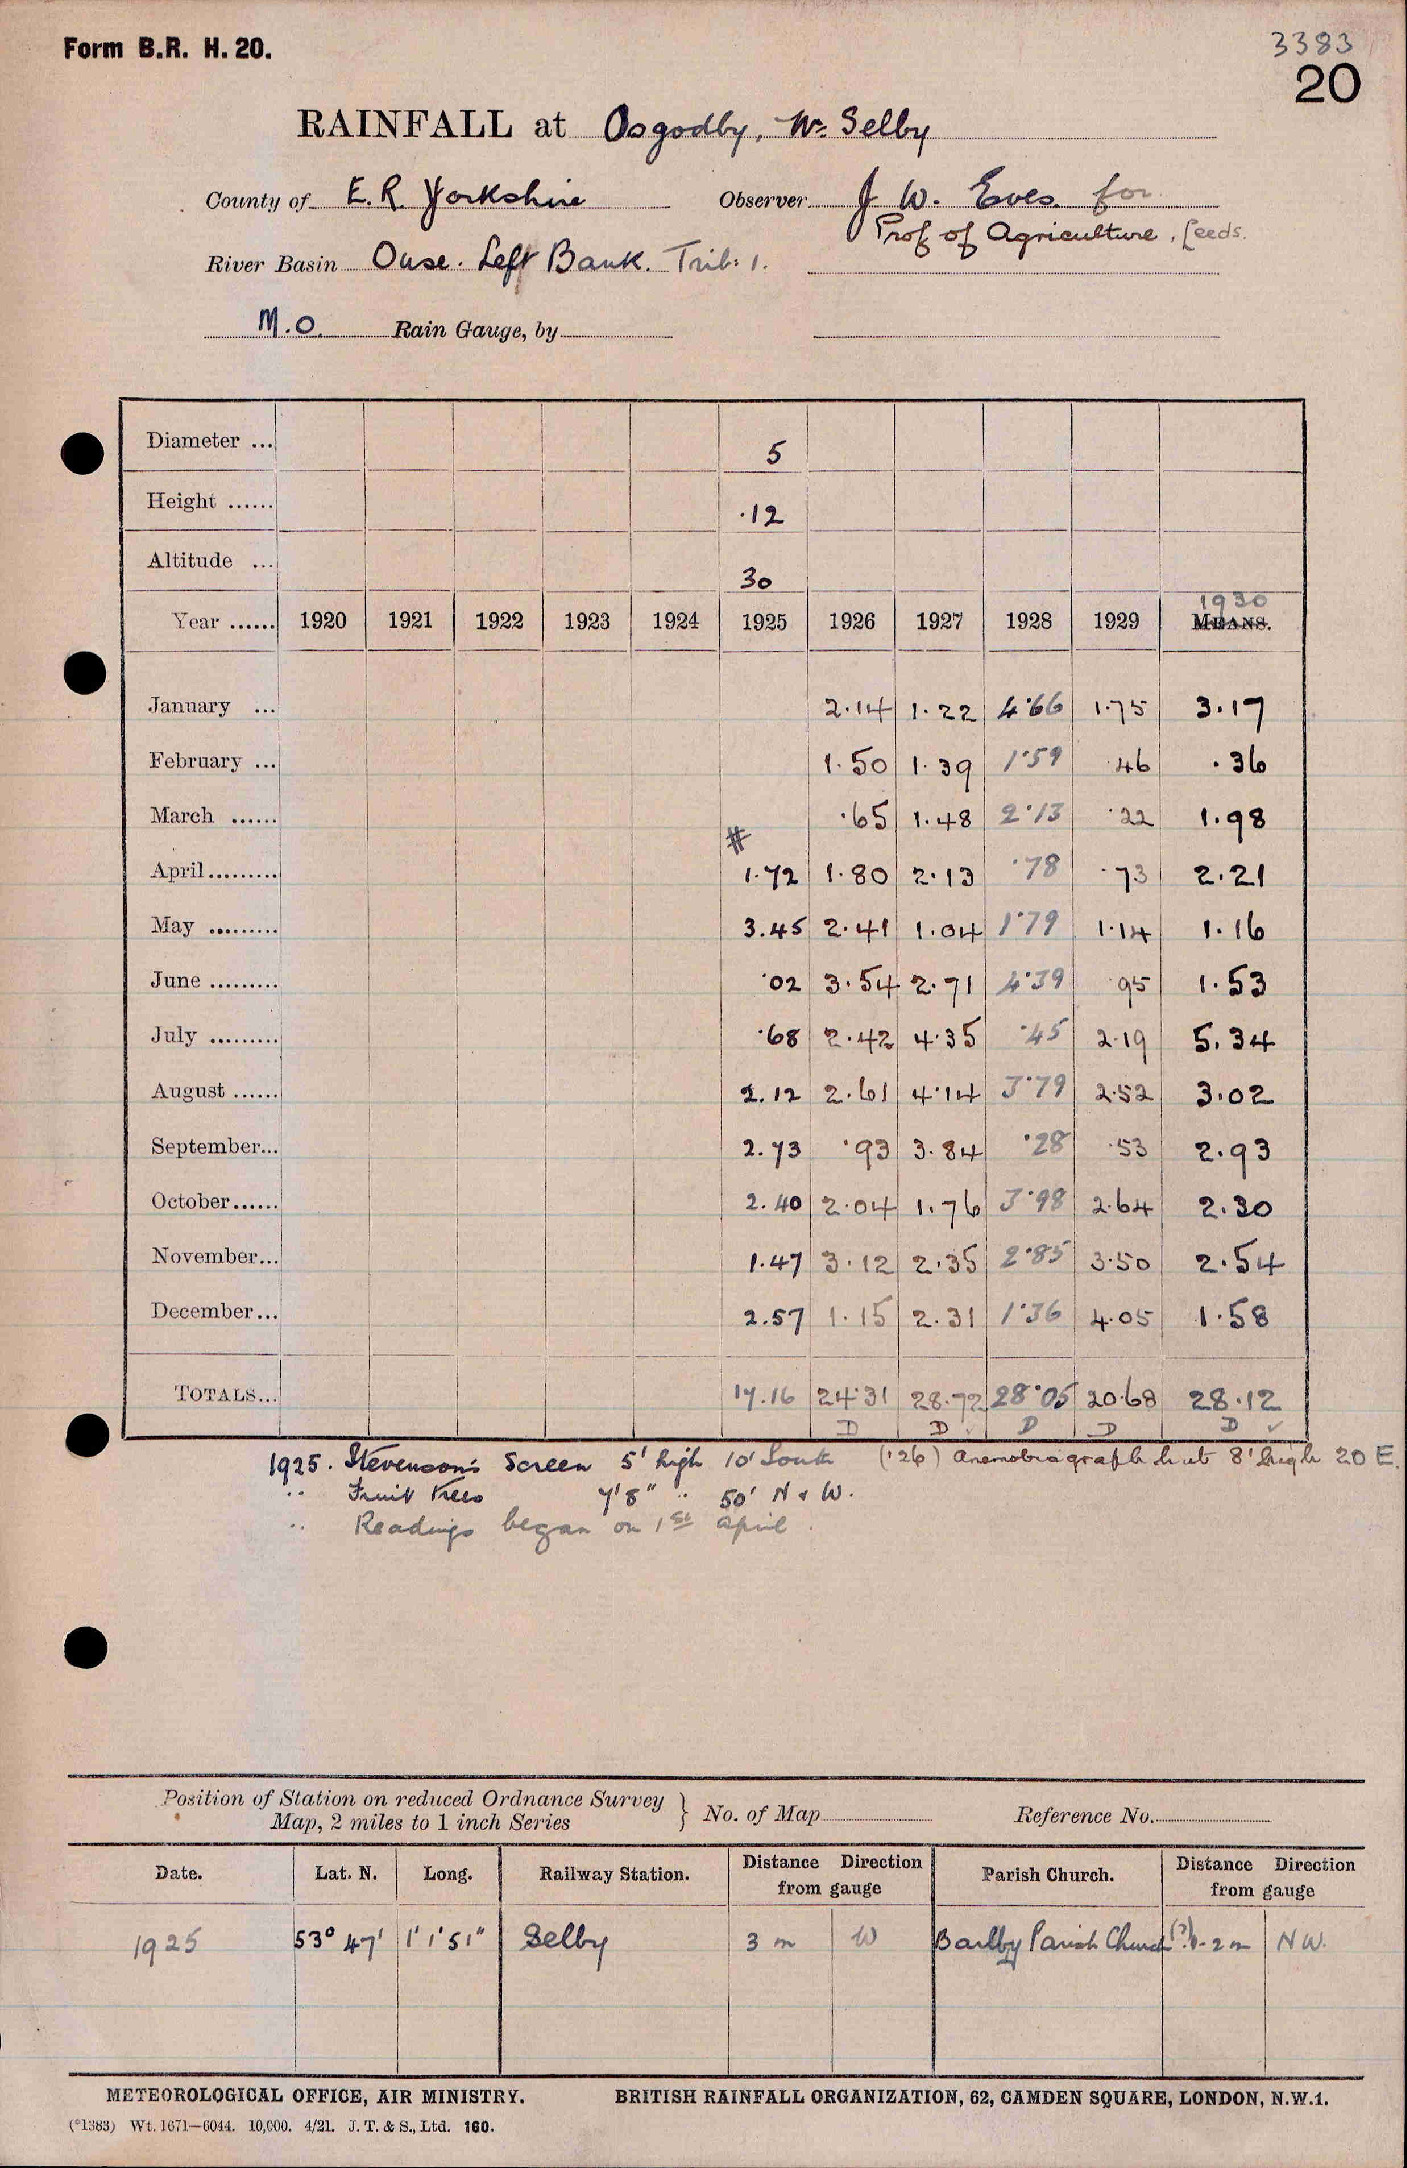 Form B.R. H. 20.
3383
20
RAINFALL at Osgodby, Nr. Selby
County of E.R. Yorkshire Observer J. W. Eves for
Prof of Agriculture, Leeds.
River Basin Ouse. Left Bank. Trib: 1.
M.O. Rain Gauge, by
Diameter ... 5
Height ...... ·12
Altitude ... 30
1930
Year ...... 1920 1921 1922 1923 1924 1925 1926 1927 1928 1929 MEANS.
January ... 2.14 1.22 4.66 1.75 3.17
February ... 1.50 1.39 1.59 .46 .36
March ...... .65 1.48 2.13 .22 1.98
#
April......... 1.72 1.80 2.13 .78 .73 2.21
May ......... 3.45 2.41 1.04 1.79 1.14 1.16
June ......... .02 3.54 2.71 4.39 .95 1.53
July ......... .68 2.42 4.35 .45 2.19 5.34
August ...... 2.12 2.61 4.14 3.79 2.52 3.02
September... 2.73 .93 3.84 .28 .53 2.93
October...... 2.40 2.04 1.76 3.98 2.64 2.30
November... 1.47 3.12 2.35 2.85 3.50 2.54
December... 2.57 1.15 2.31 1.36 4.05 1.58
TOTALS... 17.16 24.31 28.72 28.05 20.68 28.12
D D ✓ D D D ✓
1925. Stevenson's Screen 5' high 10' South ('26) anemobiagraph hut 8' high 20 E.
" Fruit Trees 7'8" " 50' N & W.
" Readings began on 1st April.
Position of Station on reduced Ordnance Survey
Map, 2 miles to 1 inch Series } No. of Map Reference No.
Date. Lat. N. Long. Railway Station. Distance Direction from gauge Parish Church. Distance Direction from gauge
1925 53° 47' 1' 1' 51" Selby 3 m W Barlby Parish Church (?) 1-2 m NW.
METEOROLOGICAL OFFICE, AIR MINISTRY. BRITISH RAINFALL ORGANIZATION, 62, CAMDEN SQUARE, LONDON, N.W.1.
(*1383) Wt. 1671—6044. 10,000. 4/21. J. T. & S., Ltd. 160.